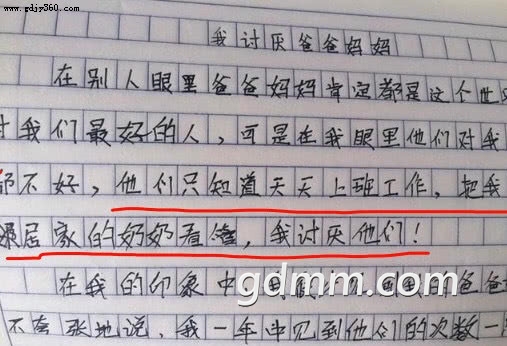 www.gdjy360.com
我讨厌爸爸妈妈
在别人眼里爸爸妈妈肯定都是这个世
对我们最好的人，可是在我眼里他们对我
都不好，他们只知道天天上班工作，把我
居家的奶奶看，我讨厌他们！
在我的印象中爸爸
gdmm.com
不夸张地说，我一年中见到他们的次数一